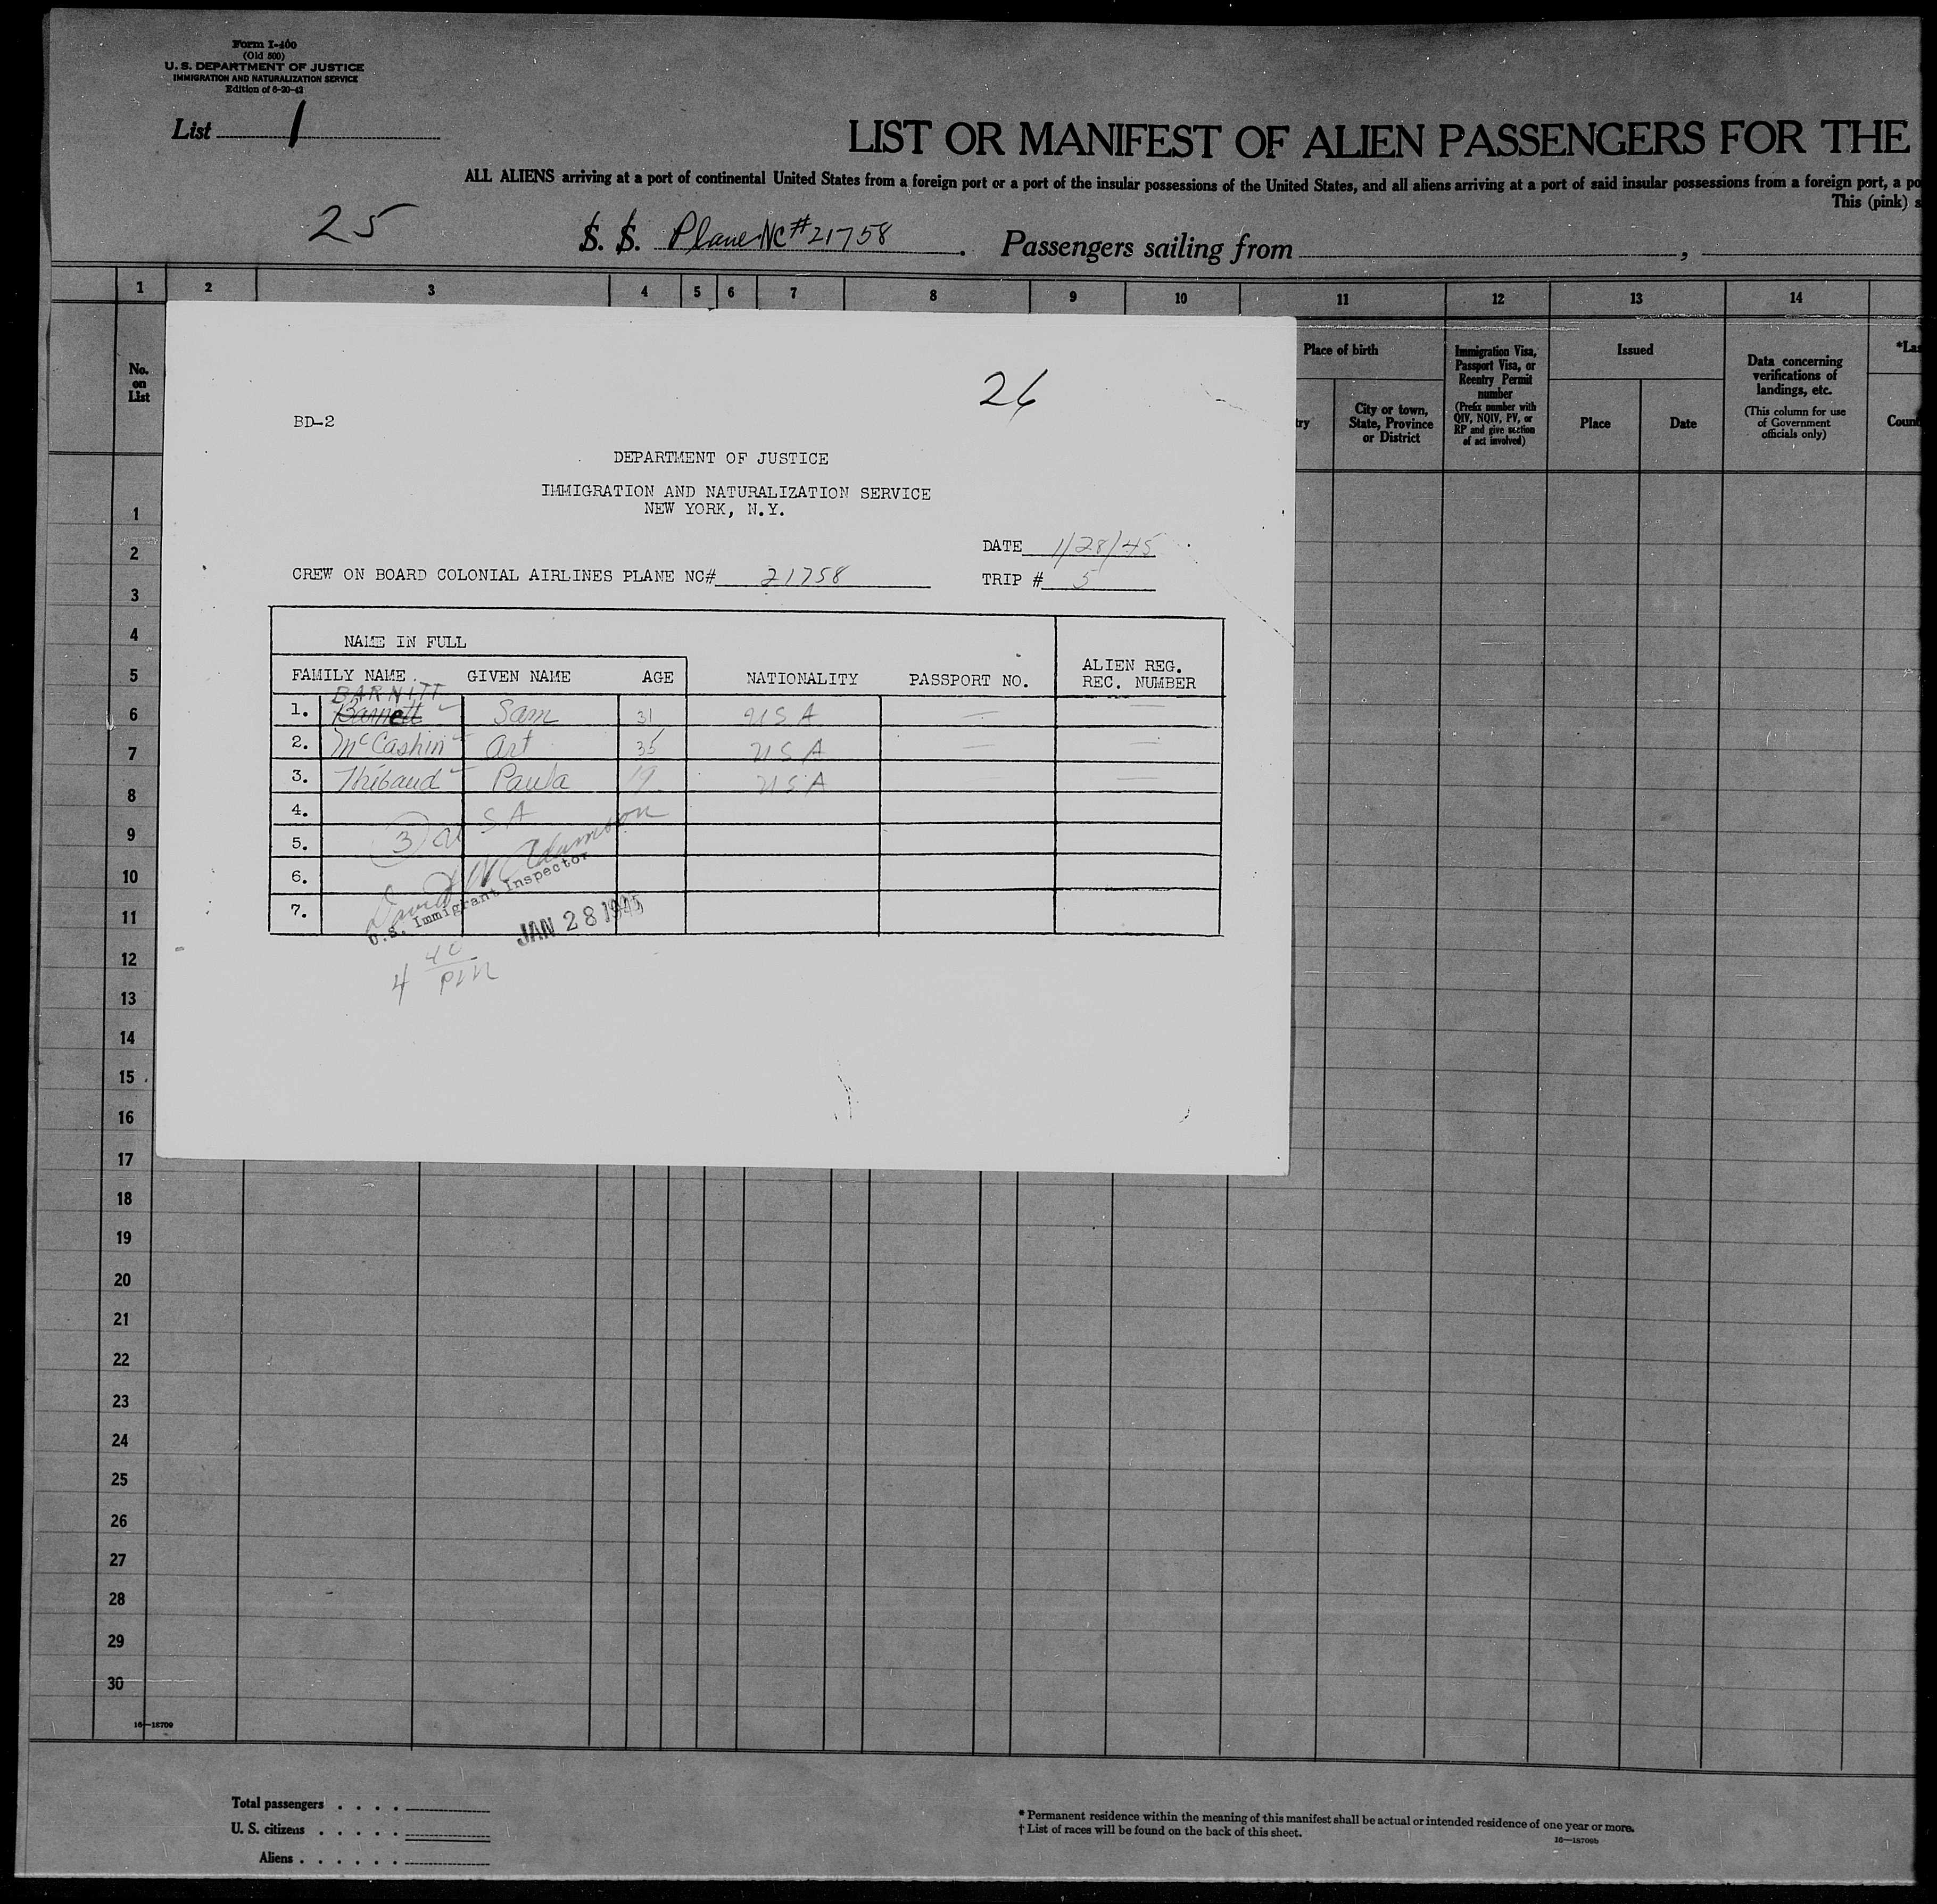 Form I-460
(Old 500)
U. S. DEPARTMENT OF JUSTICE
IMMIGRATION AND NATURALIZATION SERVICE
Edition of 6-20-42
List 1
LIST OR MANIFEST OF ALIEN PASSENGERS FOR THE
ALL ALIENS arriving at a port of continental United States from a foreign port or a port of the insular possessions of the United States, and all aliens arriving at a port of said insular possessions from a foreign port, a po
This (pink) s
25
S. S. Plane NC#21758. Passengers sailing from ,
1 2 3 4 5 6 7 8 9 10 11 12 13 14
No. on List
Place of birth
City or town, State, Province or District
Immigration Visa, Passport Visa, or Reentry Permit number
(Prefix number with QIV, NQIV, PV, or RP and give section of act involved)
Issued
Place Date
Data concerning verifications of landings, etc.
(This column for use of Government officials only)
26
BD-2
DEPARTMENT OF JUSTICE
IMMIGRATION AND NATURALIZATION SERVICE
NEW YORK, N.Y.
DATE 1/28/45
CREW ON BOARD COLONIAL AIRLINES PLANE NC# 21758
TRIP # 5
NAME IN FULL
FAMILY NAME GIVEN NAME AGE NATIONALITY PASSPORT NO. ALIEN REG. REC. NUMBER
BARNITT
1. Barnett Sam 31 USA — —
2. McCashin Art 35 USA — —
3. Thibaud Paula 19 USA —
4.
5.
6.
7.
3 USA
David W Adamson
U.S. Immigrant Inspector
JAN 28 1945
4 40 PM
1
2
3
4
5
6
7
8
9
10
11
12
13
14
15
16
17
18
19
20
21
22
23
24
25
26
27
28
29
30
16—18709
Total passengers . . . .
U. S. citizens . . . . .
Aliens . . . . . .
* Permanent residence within the meaning of this manifest shall be actual or intended residence of one year or more.
† List of races will be found on the back of this sheet.
16—18709b